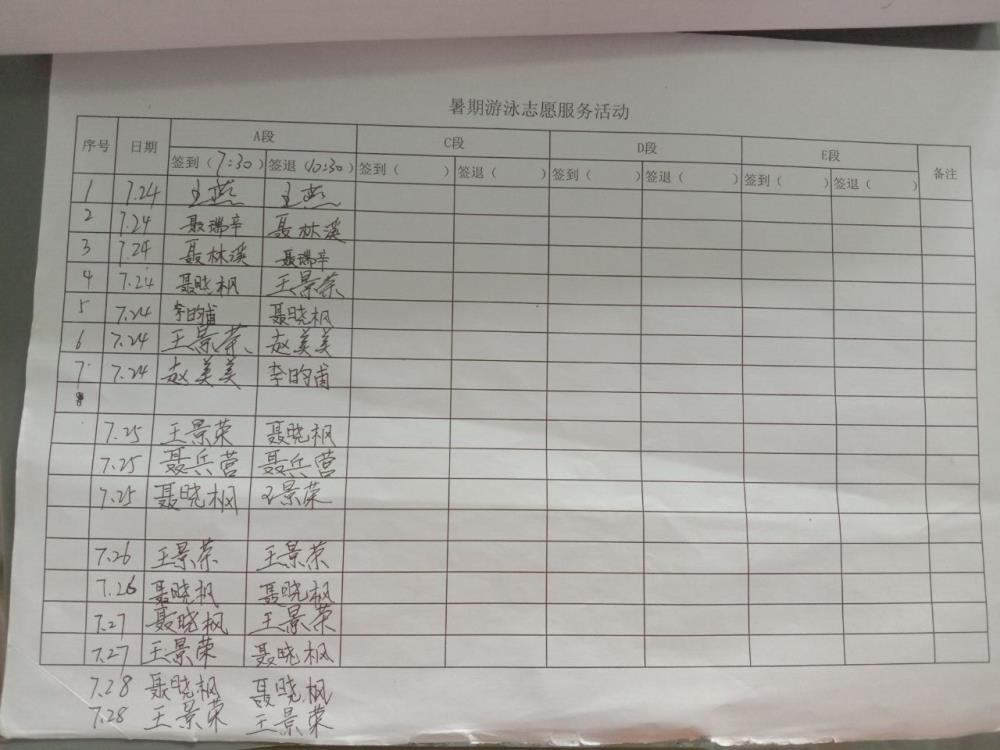 暑期游泳志愿服务活动
序号 日期 A段 C段 D段 E段 备注
签到（7:30） 签退（10:30） 签到（ ） 签退（ ） 签到（ ） 签退（ ） 签到（ ） 签退（ ）
1 7.24 王燕 王燕
2 7.24 聂瑞辛 聂林溪
3 7.24 聂林溪 聂瑞辛
4 7.24 聂晓枫 王景荣
5 7.24 李昀甫 聂晓枫
6 7.24 王景荣 赵美美
7 7.24 赵美美 李昀甫
8
7.25 王景荣 聂晓枫
7.25 聂兵营 聂兵营
7.25 聂晓枫 王景荣
7.26 王景荣 王景荣
7.26 聂晓枫 聂晓枫
7.27 聂晓枫 王景荣
7.27 王景荣 聂晓枫
7.28 聂晓枫 聂晓枫
7.28 王景荣 王景荣